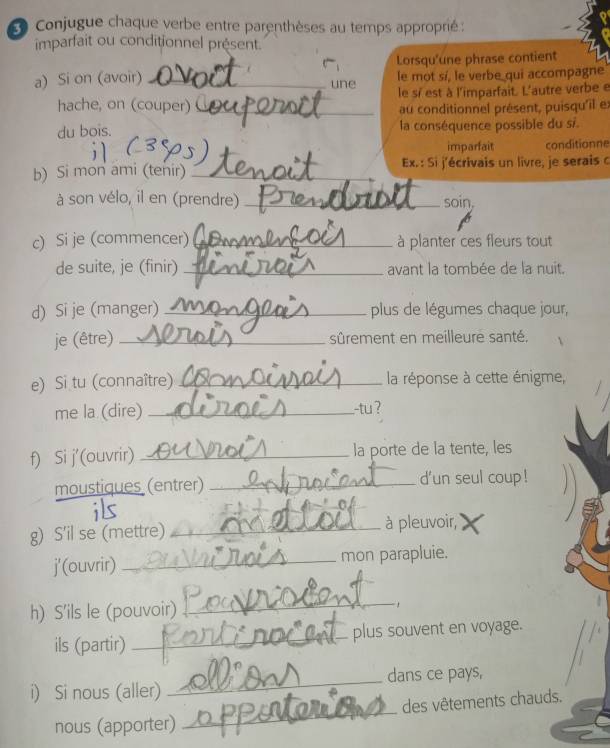 3 Conjugue chaque verbe entre parenthèses au temps approprié :
imparfait ou conditionnel présent.
Lorsqu'une phrase contient
le mot si, le verbe qui accompagne
le si est à l'imparfait. L'autre verbe e
au conditionnel présent, puisqu'il e
la conséquence possible du si.
imparfait conditionne
Ex. : Si j'écrivais un livre, je serais c
a) Si on (avoir) avait une
hache, on (couper) couperait
du bois.
il (3e ps)
b) Si mon ami (tenir) tenait
à son vélo, il en (prendre) prendrait soin.
c) Si je (commencer) commençais à planter ces fleurs tout
de suite, je (finir) finirais avant la tombée de la nuit.
d) Si je (manger) mangeais plus de légumes chaque jour,
je (être) serais sûrement en meilleure santé.
e) Si tu (connaître) connaissais la réponse à cette énigme,
me la (dire) dirais -tu?
f) Si j'(ouvrir) ouvrais la porte de la tente, les
moustiques (entrer) d'un seul coup!
ils
g) S'il se (mettre) mettait à pleuvoir,
j'(ouvrir) ouvrirais mon parapluie.
h) S'ils le (pouvoir) ,
ils (partir) partiraient plus souvent en voyage.
i) Si nous (aller) allions dans ce pays,
nous (apporter) apporterions des vêtements chauds.